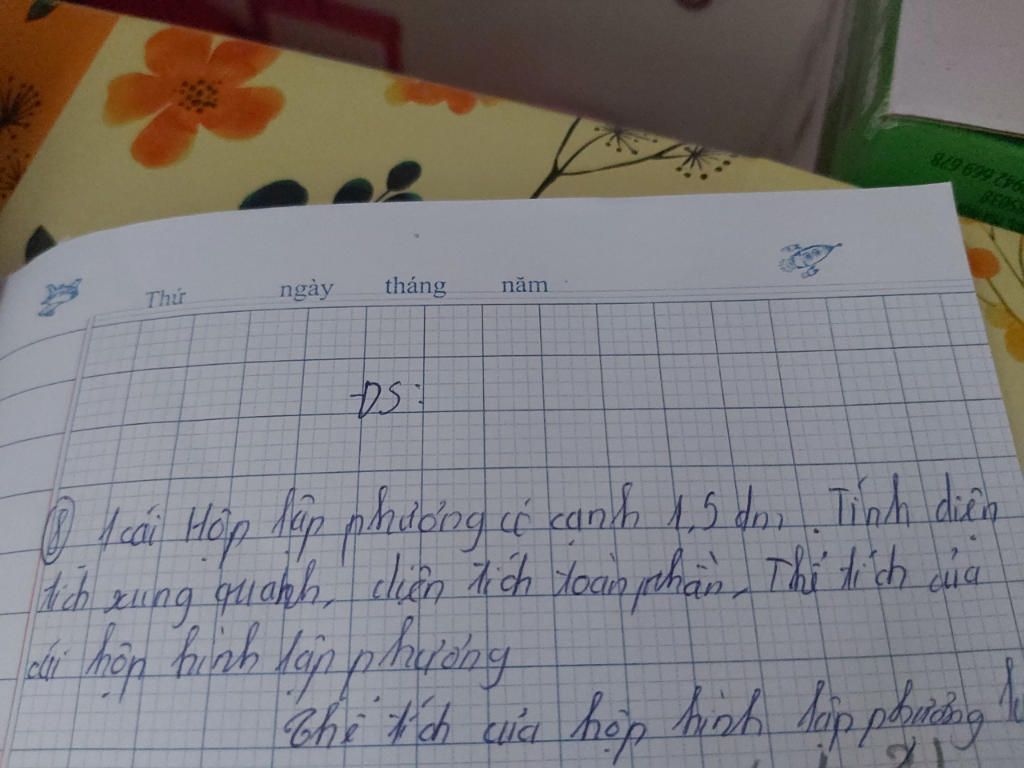 Thứ ngày tháng năm
ĐS:
⑧ 1 cái Hộp lập phương có cạnh 1,5 dm. Tính diện
tích xung quanh, diện tích toàn phần, Thể tích của
cái hộp hình lập phương
Thể tích của hộp hình lập phương